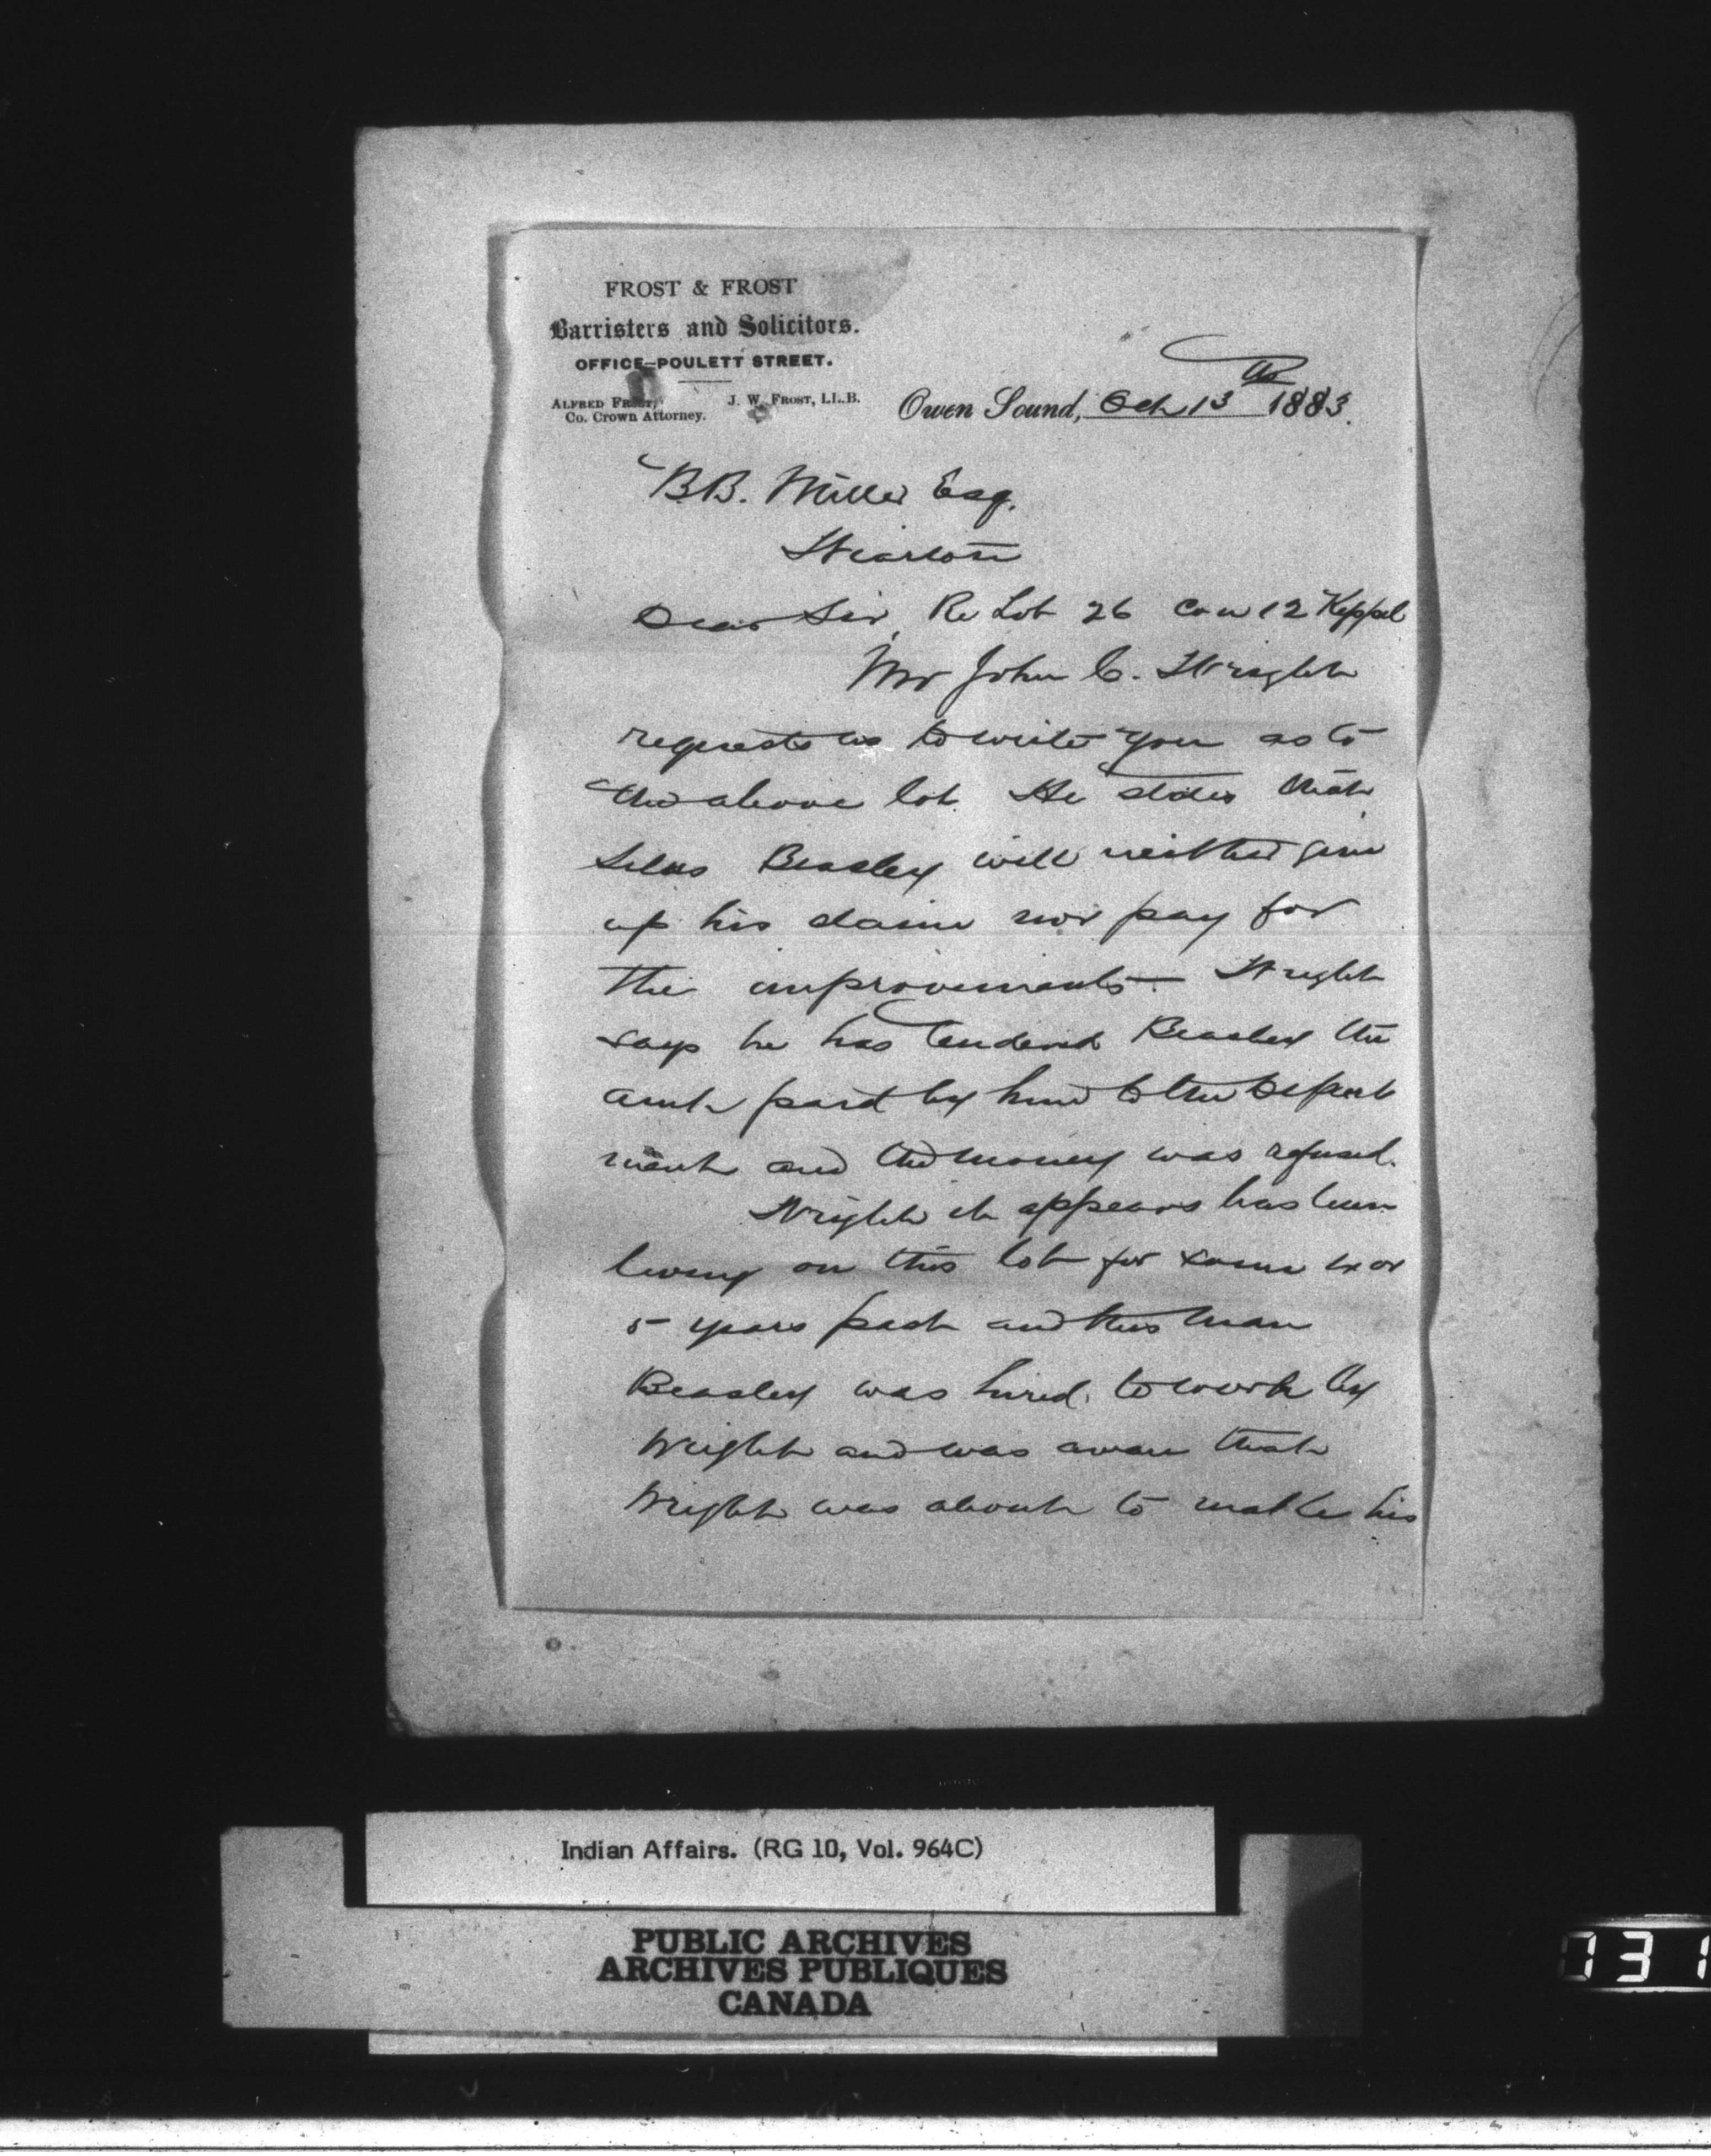 FROST & FROST
Barristers and Solicitors.
OFFICE—POULETT STREET.
ALFRED FROST, J. W. FROST, LL.B.
Co. Crown Attorney.
Owen Sound, Oct 13th 1883.
B.B. Miller Esq.
Wiarton
Dear Sir, Re Lot 26 Con 12 Keppel
Mr John C. Wright
requests us to write you as to
the above lot. He states that
Silas Beasley will neither give
up his claim nor pay for
the improvements. Wright
says he has tendered Beasley the
amt paid by him to the Depart
ment and the money was refused.
Wright it appears has been
living on this lot for some 4 or
5 years past and this man
Beasley was hired to work by
Wright and was aware that
Wright was about to make his
Indian Affairs. (RG 10, Vol. 964C)
PUBLIC ARCHIVES
ARCHIVES PUBLIQUES
CANADA
031